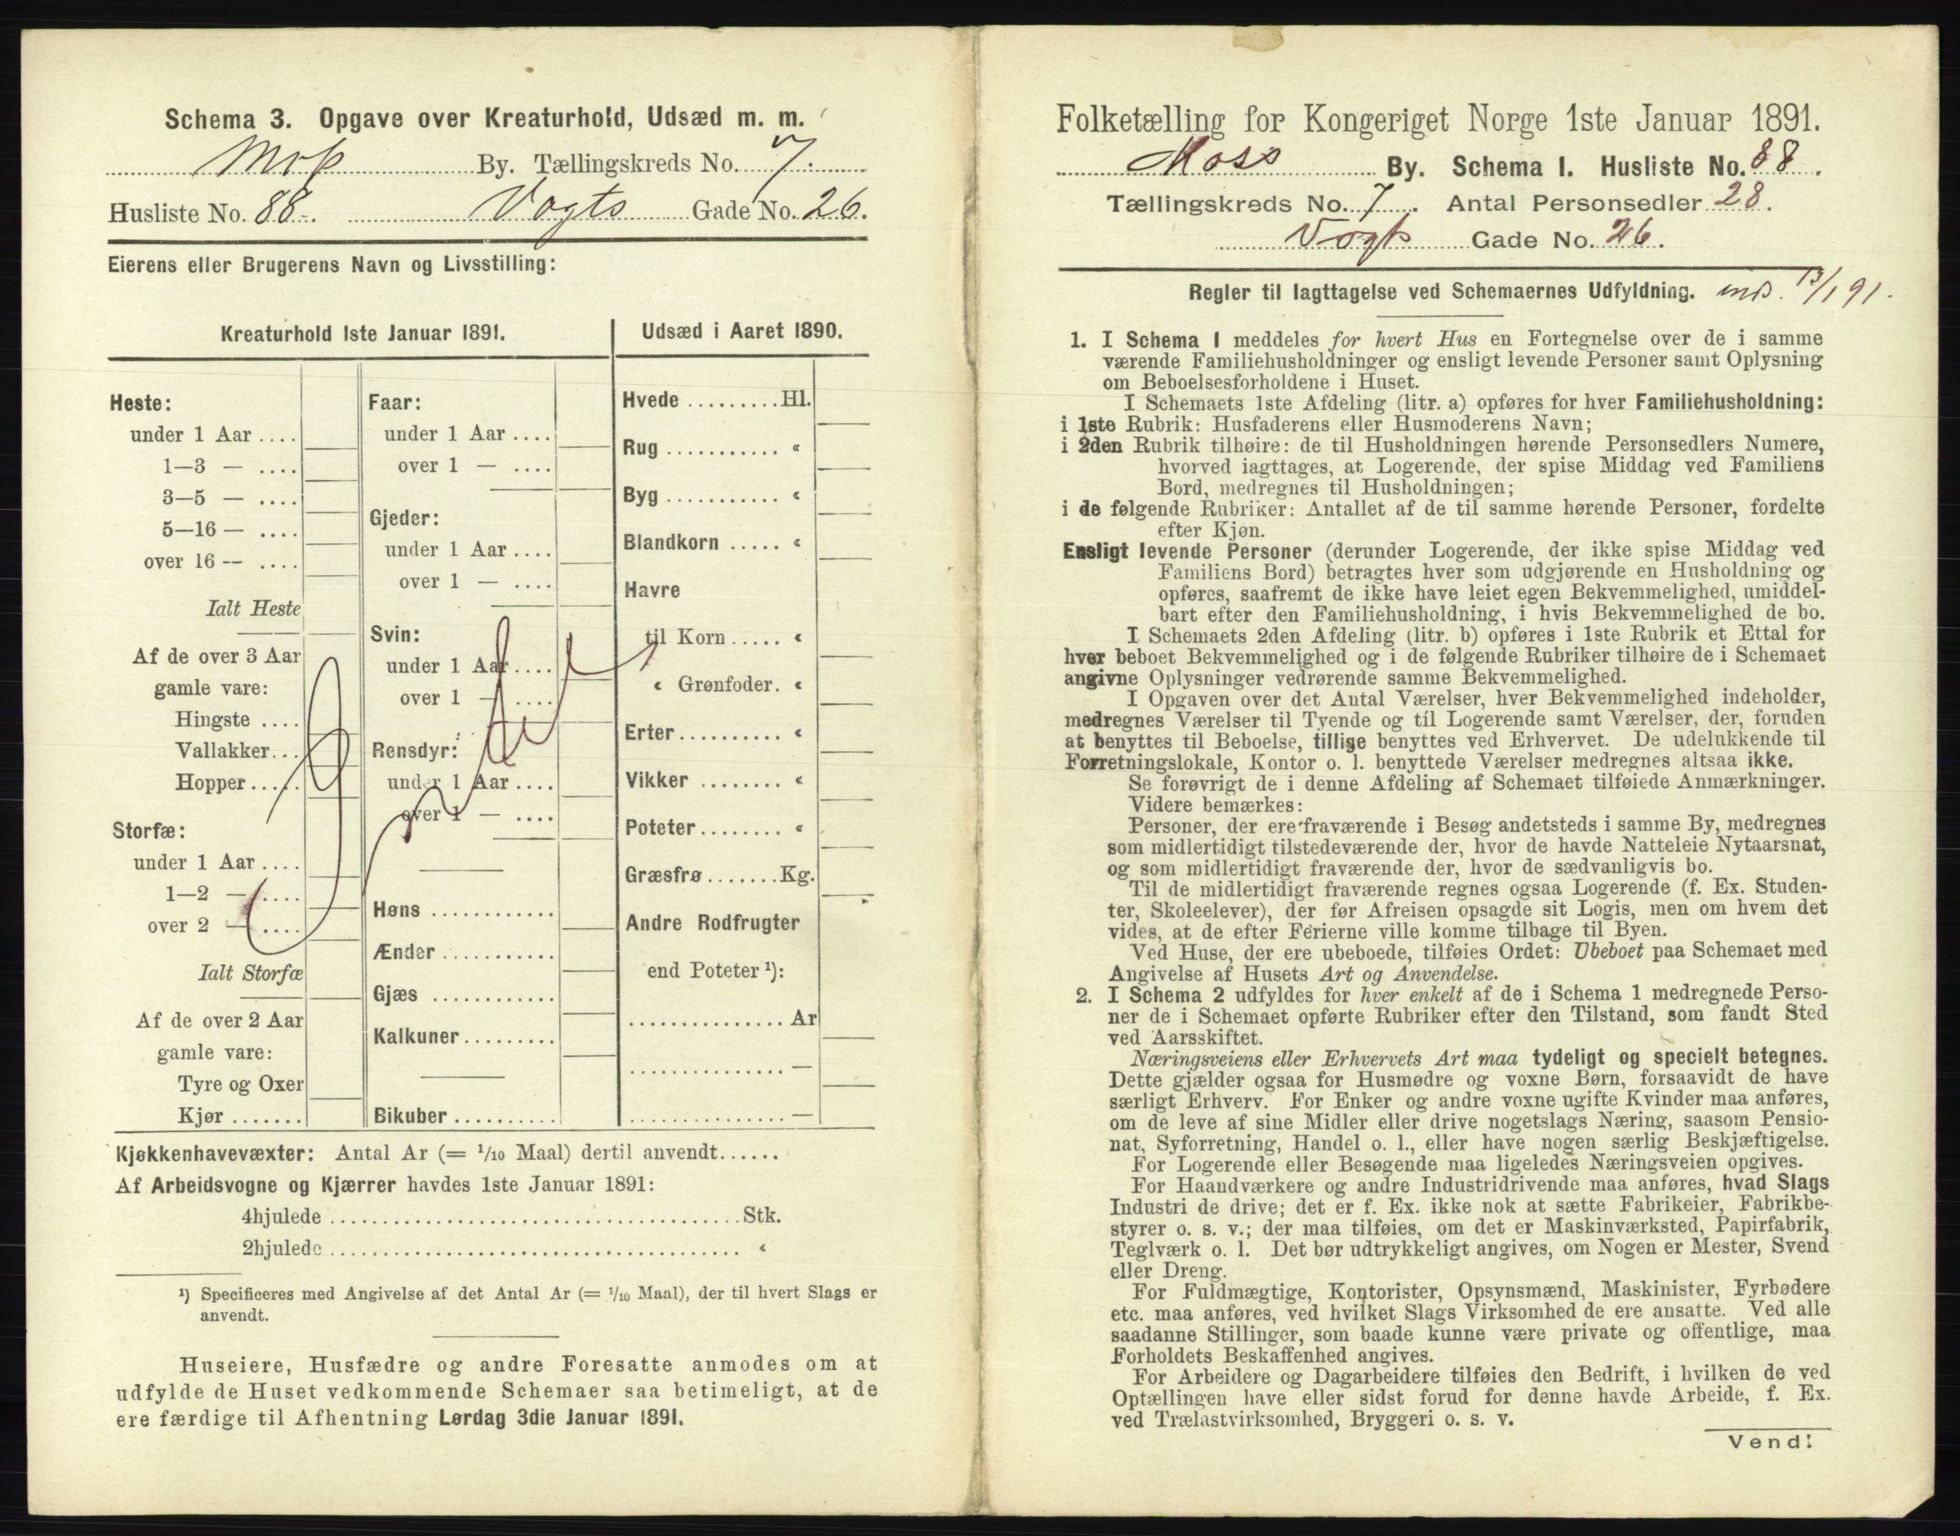 Schema 3. Opgave over Kreaturhold, Udsæd m. m.
Moss By. Tællingskreds No. 7.
Husliste No. 88. Vogts Gade No. 26.
Eierens eller Brugerens Navn og Livsstilling:
Kreaturhold 1ste Januar 1891.
Heste:
under 1 Aar ....
1—3 — ....
3—5 — ....
5—16 — ....
over 16 -- ....
Ialt Heste
Af de over 3 Aar
gamle vare:
Hingste ....
Vallakker...
Hopper.....
Storfæ:
under 1 Aar ....
1—2 — ....
over 2 — ....
Ialt Storfæ
Af de over 2 Aar
gamle vare:
Tyre og Oxer
Kjør .......
Faar:
under 1 Aar ....
over 1 — ....
Gjeder:
under 1 Aar ....
over 1 — ....
Svin:
under 1 Aar ....
over 1 — ....
Rensdyr:
under 1 Aar ....
over 1 — ....
Høns ............
Ænder ...........
Gjæs ............
Kalkuner.........
Bikuber ..........
Udsæd i Aaret 1890.
Hvede .........Hl.
Rug ........... «
Byg ........... «
Blandkorn ..... «
Havre
til Korn ..... «
« Grønfoder. «
Erter.......... «
Vikker ........ «
Poteter........ «
Græsfrø .......Kg.
Andre Rodfrugter
end Poteter ¹):
............... Ar
............... —
............... —
Kjøkkenhavevæxter: Antal Ar (= ¹/₁₀ Maal) dertil anvendt......
Af Arbeidsvogne og Kjærrer havdes 1ste Januar 1891:
4hjulede ........................................ Stk.
2hjulede ........................................ «
¹) Specificeres med Angivelse af det Antal Ar (= ¹/₁₀ Maal), der til hvert Slags er
anvendt.
Huseiere, Husfædre og andre Foresatte anmodes om at
udfylde de Huset vedkommende Schemaer saa betimeligt, at de
ere færdige til Afhentning Lørdag 3die Januar 1891.
Folketælling for Kongeriget Norge 1ste Januar 1891.
Moss By. Schema I. Husliste No. 88.
Tællingskreds No. 7. Antal Personsedler 28.
Vogts Gade No. 26.
Regler til Iagttagelse ved Schemaernes Udfyldning. 13/1 91.
1. I Schema 1 meddeles for hvert Hus en Fortegnelse over de i samme
værende Familiehusholdninger og ensligt levende Personer samt Oplysning
om Beboelsesforholdene i Huset.
I Schemaets 1ste Afdeling (litr. a) opføres for hver Familiehusholdning:
i 1ste Rubrik: Husfaderens eller Husmoderens Navn;
i 2den Rubrik tilhøire: de til Husholdningen hørende Personsedlers Numere,
hvorved iagttages, at Logerende, der spise Middag ved Familiens
Bord, medregnes til Husholdningen;
i de følgende Rubriker: Antallet af de til samme hørende Personer, fordelte
efter Kjøn.
Ensligt levende Personer (derunder Logerende, der ikke spise Middag ved
Familiens Bord) betragtes hver som udgjørende en Husholdning og
opføres, saafremt de ikke have leiet egen Bekvemmelighed, umiddel-
bart efter den Familiehusholdning, i hvis Bekvemmelighed de bo.
I Schemaets 2den Afdeling (litr. b) opføres i 1ste Rubrik et Ettal for
hver beboet Bekvemmelighed og i de følgende Rubriker tilhøire de i Schemaet
angivne Oplysninger vedrørende samme Bekvemmelighed.
I Opgaven over det Antal Værelser, hver Bekvemmelighed indeholder,
medregnes Værelser til Tyende og til Logerende samt Værelser, der, foruden
at benyttes til Beboelse, tillige benyttes ved Erhvervet. De udelukkende til
Forretningslokale, Kontor o. l. benyttede Værelser medregnes altsaa ikke.
Se forøvrigt de i denne Afdeling af Schemaet tilføiede Anmærkninger.
Videre bemærkes:
Personer, der ere fraværende i Besøg andetsteds i samme By, medregnes
som midlertidigt tilstedeværende der, hvor de havde Natteleie Nytaarsnat,
og som midlertidigt fraværende der, hvor de sædvanligvis bo.
Til de midlertidigt fraværende regnes ogsaa Logerende (f. Ex. Studen-
ter, Skoleelever), der før Afreisen opsagde sit Logis, men om hvem det
vides, at de efter Ferierne ville komme tilbage til Byen.
Ved Huse, der ere ubeboede, tilføies Ordet: Ubeboet paa Schemaet med
Angivelse af Husets Art og Anvendelse.
2. I Schema 2 udfyldes for hver enkelt af de i Schema 1 medregnede Perso-
ner de i Schemaet opførte Rubriker efter den Tilstand, som fandt Sted
ved Aarsskiftet.
Næringsveiens eller Erhvervets Art maa tydeligt og specielt betegnes.
Dette gjælder ogsaa for Husmødre og voxne Børn, forsaavidt de have
særligt Erhverv. For Enker og andre voxne ugifte Kvinder maa anføres,
om de leve af sine Midler eller drive nogetslags Næring, saasom Pensio-
nat, Syforretning, Handel o. l., eller have nogen særlig Beskjæftigelse.
For Logerende eller Besøgende maa ligeledes Næringsveien opgives.
For Haandværkere og andre Industridrivende maa anføres, hvad Slags
Industri de drive; det er f. Ex. ikke nok at sætte Fabrikeier, Fabrikbe-
styrer o. s. v.; der maa tilføies, om det er Maskinværksted, Papirfabrik,
Teglværk o. l. Det bør udtrykkeligt angives, om Nogen er Mester, Svend
eller Dreng.
For Fuldmægtige, Kontorister, Opsynsmænd, Maskinister, Fyrbødere
etc. maa anføres, ved hvilket Slags Virksomhed de ere ansatte. Ved alle
saadanne Stillinger, som baade kunne være private og offentlige, maa
Forholdets Beskaffenhed angives.
For Arbeidere og Dagarbeidere tilføies den Bedrift, i hvilken de ved
Optællingen have eller sidst forud for denne havde Arbeide, f. Ex.
ved Trælastvirksomhed, Bryggeri o. s. v.
Vend!